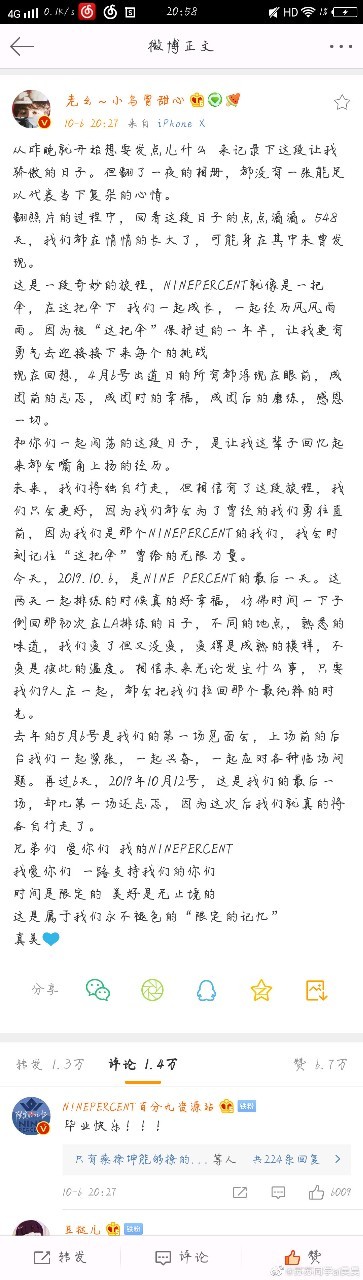 4G 0.1K/s 20:58 HD 1%
微博正文
老幺~小乌冒甜心
10-6 20:27 来自 iPhone X
从昨晚就开始想要发点儿什么 来记录下这段让我
骄傲的日子。但翻了一夜的相册，都没有一张能足
以代表当下复杂的心情。
翻照片的过程中，回看这段日子的点点滴滴。548
天，我们都在悄悄的长大了，可能身在其中未曾发
现。
这是一段奇妙的旅程，NINEPERCENT就像是一把
伞，在这把伞下 我们一起成长，一起经历风风雨
雨。因为被“这把伞”保护过的一年半，让我更有
勇气去迎接接下来每个的挑战
现在回想，4月6号出道日的所有都浮现在眼前，成
团前的忐忑，成团时的幸福，成团后的磨练，感恩
一切。
和你们一起闯荡的这段日子，是让我这辈子回忆起
来都会嘴角上扬的经历。
未来，我们将独自行走，但相信有了这段旅程，我
们只会更好，因为我们都会为了曾经的我们勇往直
前，因为我们是那个NINEPERCENT的我们，我会时
刻记住“这把伞”曾给的无限力量。
今天，2019.10.6，是NINE PERCENT的最后一天。这
两天一起排练的时候真的好幸福，仿佛时间一下子
倒回那初次在LA排练的日子，不同的地点，熟悉的
味道，我们变了但又没变，变得是成熟的模样，不
变是彼此的温度。相信未来无论发生什么事，只要
我们9人在一起，都会把我们拉回那个最纯粹的时
光。
去年的5月6号是我们的第一场见面会，上场前的后
台我们一起紧张，一起兴奋，一起应对各种临场问
题。再过6天，2019年10月12号，这是我们的最后一
场，却比第一场还忐忑，因为这次后我们就真的将
各自行走了。
兄弟们 爱你们 我的NINEPERCENT
我爱你们 一路支持我们的你们
时间是限定的 美好是无止境的
这是属于我们永不褪色的“限定的记忆”
真美
分享
转发 1.3万 评论 1.4万 赞 6.7万
NINEPERCENT百分九资源站 铁粉
毕业快乐！！！
只有蔡徐坤能撩的... 等人 共224条回复
10-6 20:27 6009
豆豉儿 铁粉
转发 评论 赞